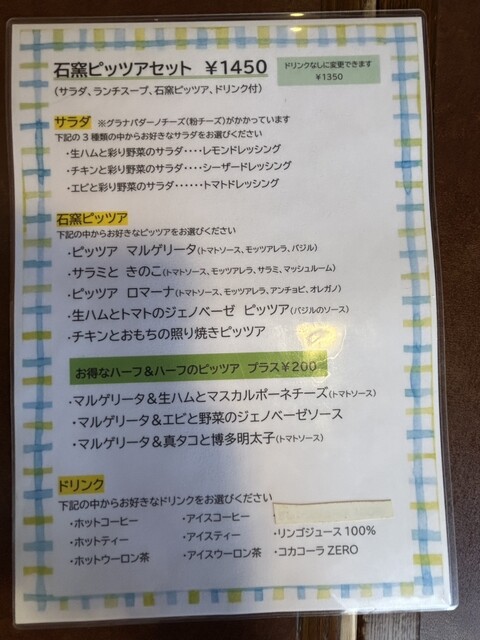 石窯ピッツアセット ¥1450
ドリンクなしに変更できます
¥1350
(サラダ、ランチスープ、石窯ピッツア、ドリンク付)
サラダ ※グラナパダーノチーズ(粉チーズ)がかかっています
下記の3種類の中からお好きなサラダをお選びください
・生ハムと彩り野菜のサラダ‥‥レモンドレッシング
・チキンと彩り野菜のサラダ‥‥シーザードレッシング
・エビと彩り野菜のサラダ‥‥‥トマトドレッシング
石窯ピッツア
下記の中からお好きなピッツアをお選びください
・ピッツア マルゲリータ(トマトソース、モッツアレラ、バジル)
・サラミと きのこ(トマトソース、モッツアレラ、サラミ、マッシュルーム)
・ピッツア ロマーナ(トマトソース、モッツアレラ、アンチョビ、オレガノ)
・生ハムとトマトのジェノベーゼ ピッツア(バジルのソース)
・チキンとおもちの照り焼きピッツア
お得なハーフ&ハーフのピッツア プラス¥200
・マルゲリータ&生ハムとマスカルポーネチーズ(トマトソース)
・マルゲリータ&エビと野菜のジェノベーゼソース
・マルゲリータ&真タコと博多明太子(トマトソース)
ドリンク
下記の中からお好きなドリンクをお選びください
・ホットコーヒー ・アイスコーヒー
・ホットティー ・アイスティー ・リンゴジュース100%
・ホットウーロン茶 ・アイスウーロン茶 ・コカコーラZERO